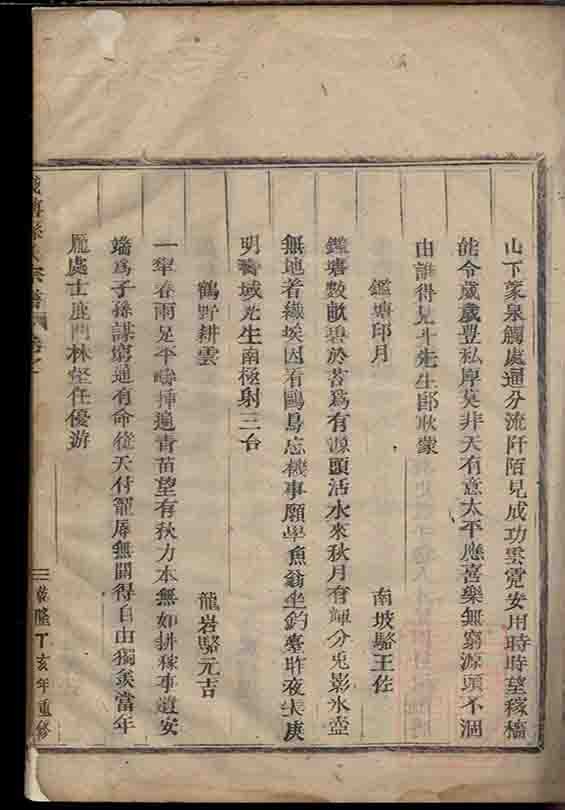 山下蒙泉觸處通分流阡陌見成功雲霓安用時時望稼穡
能令歲歲豐私厚莫非天有意太平應喜樂無窮源頭不涸
由誰得見斗先生邱耿蒙
鑑塘印月　南坡駱王佐
鑑塘數畝碧於苔爲有源頭活水來秋月有輝分兎影氷壺
無地着纖埃因看鷗鳥忘機事願學魚翁坐釣臺昨夜失庚
明 域先生南極射三台
鶴野耕雲　龍岩駱元吉
一犂春雨足平疇揷遍青苗望有秋力本無如耕稼事遺安
端爲子孫謀窮通有命從天付寵辱無關得自由獨羨當年
龎處士鹿門林壑任優游
乾隆丁亥年重修